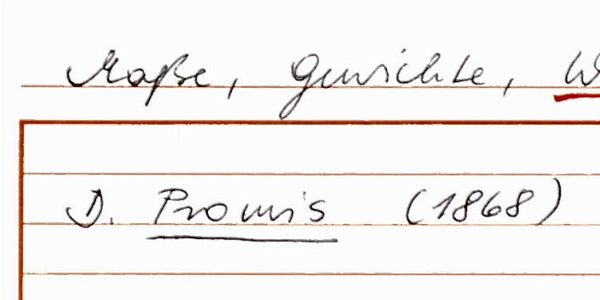 Maße, Gewichte, W
D. Promis (1868)